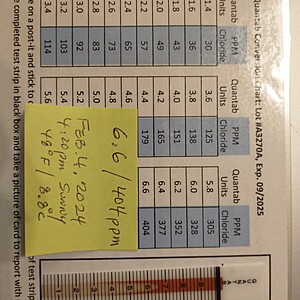 Quantab Conversion chart: Lot #A3270A, Exp. 09/2025
Quantab Units PPM Chloride Quantab Units PPM Chloride Quantab Units PPM Chloride
1.4 30 3.6 125 5.8 305
1.6 36 3.8 138 6.0 328
1.8 43 4.0 151 6.2 352
2.0 49 4.2 165 6.4 377
2.2 57 4.4 179 6.6 404
2.4 65 4.6
2.6 73 4.8
2.8 83 5.0
3.0 92 5.2
3.2 103 5.4
3.4 114 5.6
6.6 / 404 ppm
FEB. 4, 2024
4:20pm Sunny
48°F / 8.8°C
QUANTAB
on a post-it and stick to
completed test strip in black box and take a picture of card to report with
of test strip